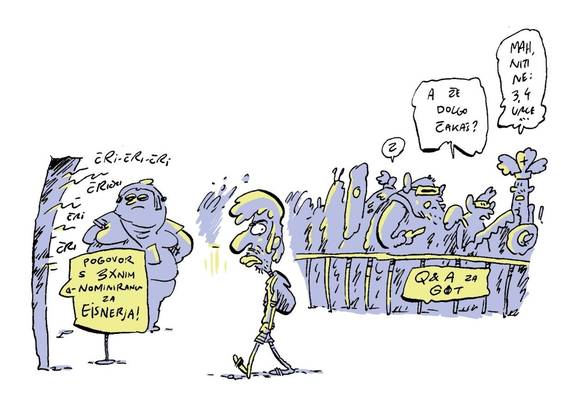 ČRI-ČRI-ČRI
ČRIČRI
ČRI
ČRI
POGOVOR
S 3XNIM
NOMINIRANCEM
ZA
EISNERJA!
?
A ŽE
DOLGO
ČAKAŠ?
MAH,
NITI
NE:
3, 4
URCE...
!
Q & A ZA
GOT